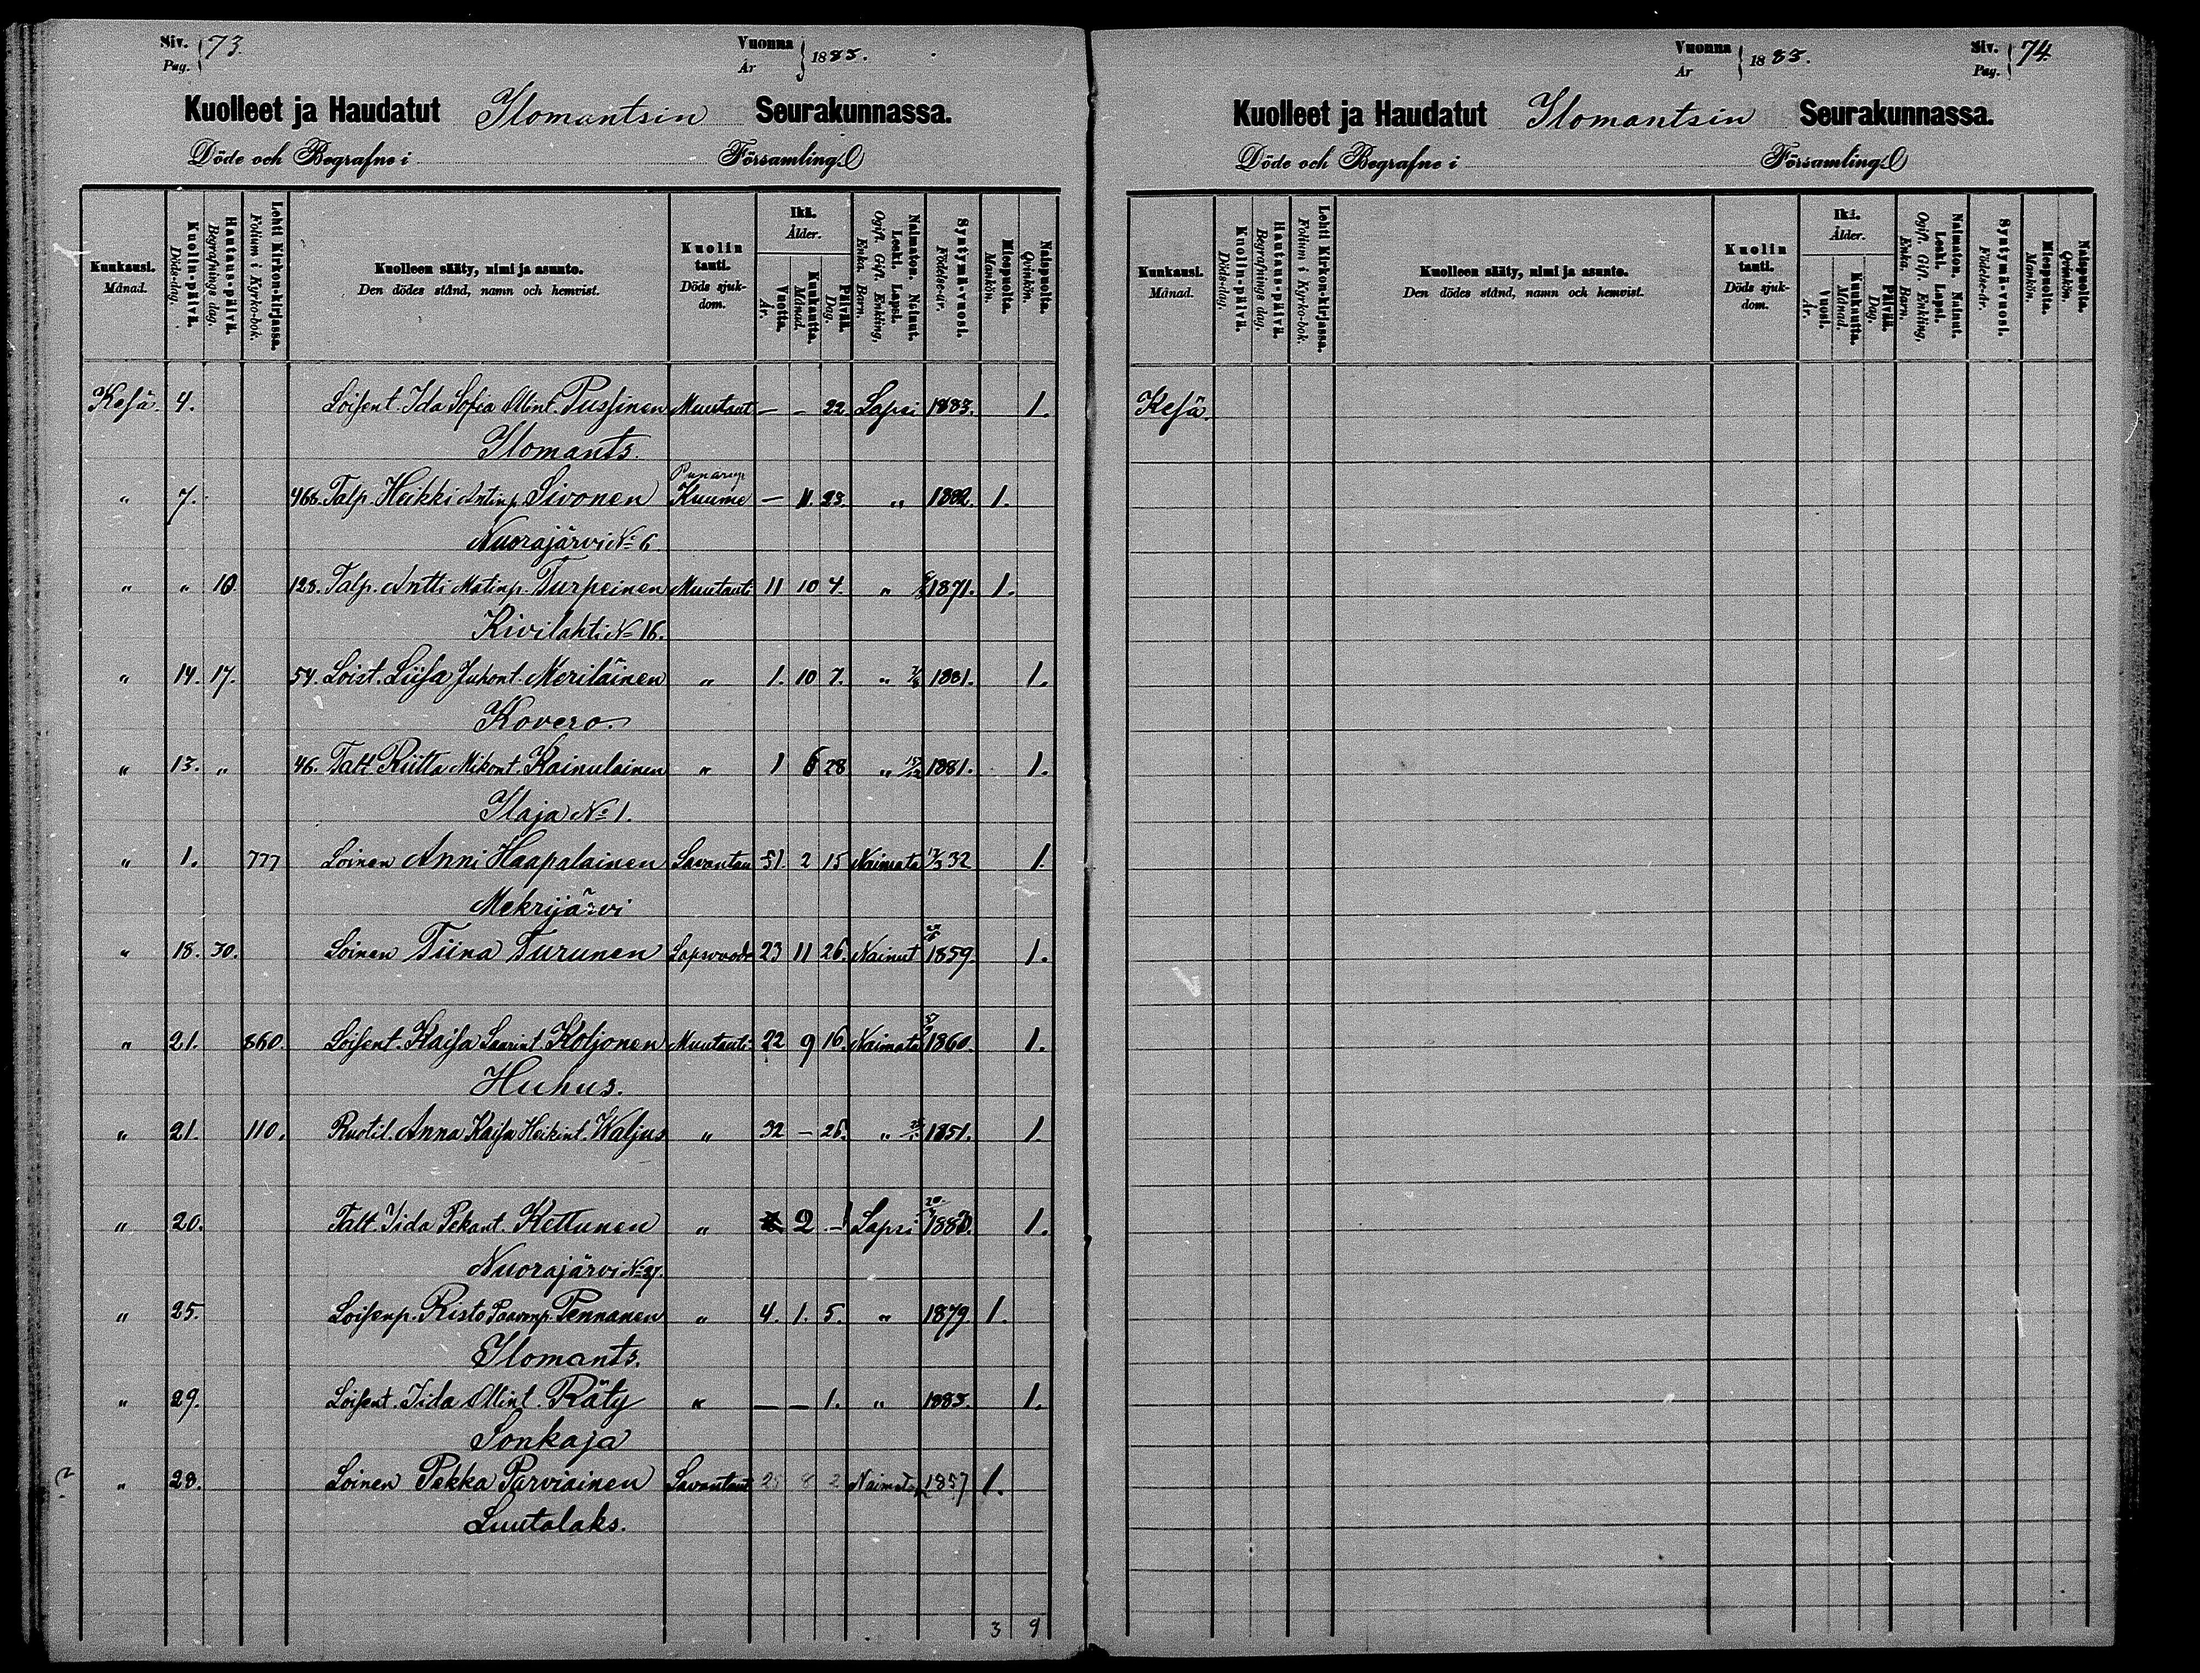 Siv. Pag. 73. Vuonna År 1883.
Kuolleet ja Haudatut Ilomantsin Seurakunnassa.
Döde och Begrafne i Församling.
Kuukausi. Månad.
Kuolin-päivä. Döds-dag.
Hautaus-päivä. Begrafnings dag.
Lehti Kirkon-kirjassa. Folium i Kyrko-bok.
Kuolleen sääty, nimi ja asunto. Den dödes stånd, namn och hemvist.
Kuolin tauti. Döds sjuk-dom.
Ikä. Ålder.
Vuotta. År.
Kuukautta. Månad.
Päivää. Dag.
Naimaton. Nainut. Leski. Lapsi. Ogift. Gift. Enkling. Enka. Barn.
Syntymä-vuosi. Födelse-år.
Miespuolta. Mankön.
Naispuolta. Qvinkön.
Kesä. 4. Loisent. Ida Sofia Ollint. Pussinen Muutaut — - 22 Lapsi 1883. 1.
Ilomants.
Punarup
" 7. 468. Talp. Heikki Antinp. Sivonen Kuume — 11. 23. " 1882. 1.
Nuorajärvi No 6
" " 10. 128. Talp. Antti Matinp. Turpeinen Muutauti 11 10 4. " 1871. 1.
Kivilahti No 16.
" 14. 17. 54. Loist. Liisa Juhont. Meriläinen " 1. 10 7. " 7/8 1881. 1.
Kovero.
" 13. " 46. Talt. Riitta Mikont. Kainulainen " 1 6 28 " 15/12 1881. 1.
Ilaja No 1.
" 1. 777 Loinen Anni Haapalainen Lavantau 51. 2 15 Naimata 17/3 32 1.
Mekrijärvi
" 18. 30. Loinen Tiina Turunen Lapsvuode 23 11 26. Nainut 1859. 1.
" 21. 860. Loisent. Kaisa Laurint. Koljonen Muutauti 22 9 16. Naimata 1860. 1.
Huhus.
" 21. 110. Ruotil. Anna Kaisa Heikint. Waljus " 32 — 26. " 1851. 1.
" 20. Talt. Iida Pekant. Kettunen " 2 - Lapsi 1883. 1.
Nuorajärvi No 27.
" 25. Loisenp. Risto Paavonp. Pennanen " 4. 1. 5. " 1879. 1.
Ilomants.
" 29. Loisent. Iida Ollint. Räty " — — 1. " 1883. 1.
Sonkaja
" 28. Loinen Pekka Parviainen Lavantaut 25 8 2 Naimato 1857 1.
Luutalaks.
3 9
Vuonna År 1883. Siv. Pag. 74.
Kuolleet ja Haudatut Ilomantsin Seurakunnassa.
Döde och Begrafne i Församling.
Kuukausi. Månad.
Kuolin-päivä. Döds-dag.
Hautaus-päivä. Begrafnings dag.
Lehti Kirkon-kirjassa. Folium i Kyrko-bok.
Kuolleen sääty, nimi ja asunto. Den dödes stånd, namn och hemvist.
Kuolin tauti. Döds sjuk-dom.
Ikä. Ålder.
Vuosi. År.
Kuukautta. Månad.
Päivää. Dag.
Naimaton. Nainut. Leski. Lapsi. Ogift. Gift. Enkling. Enka. Barn.
Syntymä-vuosi. Födelse-år.
Miespuolta. Mankön.
Naispuolta. Qvinkön.
Kesä.